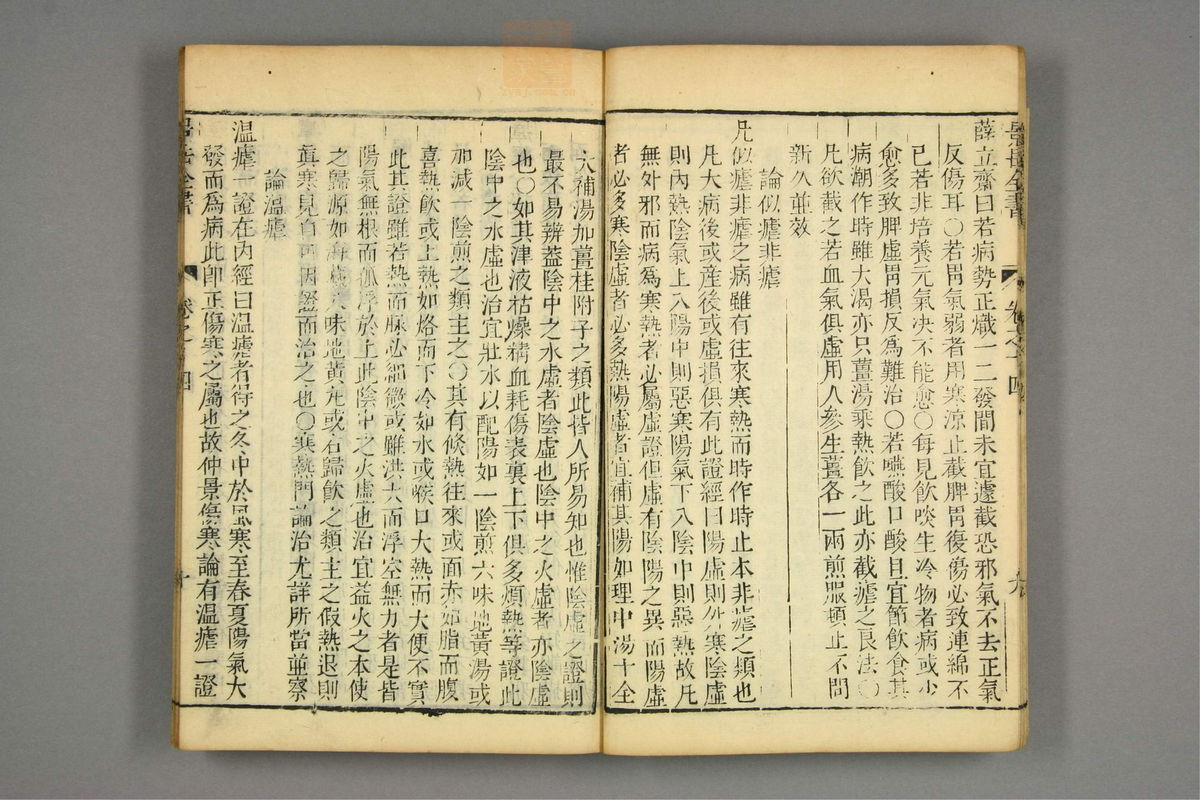 景岳全書 卷之十四 九
薛立齋曰若病勢正熾一二發間未宜遽截恐邪氣不去正氣
反傷耳○若胃氣弱者用寒涼止截脾胃復傷必致連綿不
已若非培養元氣决不能愈○每見飲啖生冷物者病或少
愈多致脾虛胃損反爲難治○若嚥酸口酸且宜節飲食其
病潮作時雖大渴亦只薑湯乘熱飲之此亦截瘧之良法○
凡欲截之若血氣俱虛用人參生薑各一兩煎服頓止不問
新久並效
論似瘧非瘧
凡似瘧非瘧之病雖有往來寒熱而時作時止本非瘧之類也
凡大病後或産後或虛損俱有此證經曰陽虛則外寒陰虛
則內熱陰氣上入陽中則惡寒陽氣下入陰中則惡熱故凡
無外邪而病爲寒熱者必屬虛證但虛有陰陽之異而陽虛
者必多寒陰虛者必多熱陽虛者宜補其陽如理中湯十全
大補湯加薑桂附子之類此皆人所易知也惟陰虛之證則
最不易辨葢陰中之水虛者陰虛也陰中之火虛者亦陰虛
也○如其津液枯燥精血耗傷表裏上下俱多煩熱等證此
陰中之水虛也治宜壯水以配陽如一陰煎六味地黃湯或
加減一陰煎之類主之○其有倏熱往來或面赤如脂而腹
喜熱飲或上熱如烙而下冷如水或喉口大熱而大便不實
此其證雖若熱而脉必細微或雖洪大而浮空無力者是皆
陽氣無根而孤浮於上此陰中之火虛也治宜益火之本使
之歸源如海藏八味地黃丸或右歸飲之類主之假熱退則
眞寒見自可因證而治之也○寒熱門論治尤詳所當並察
論溫瘧
溫瘧一證在內經曰溫瘧者得之冬中於風寒至春夏陽氣大
發而爲病此卽正傷寒之屬也故仲景傷寒論有溫瘧一證
景岳全書 卷之十四 十